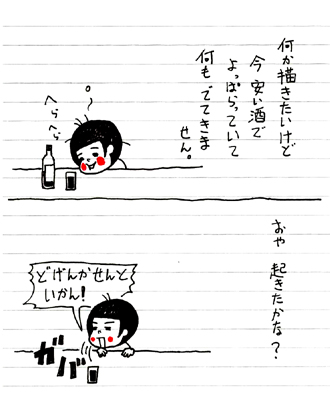 何か描きたいけど
今 安い酒で
よっぱらっていて
何も でてきま
せん。
へらへら
おや 起きたかな？
どげんかせんと
いかん！
ガバ